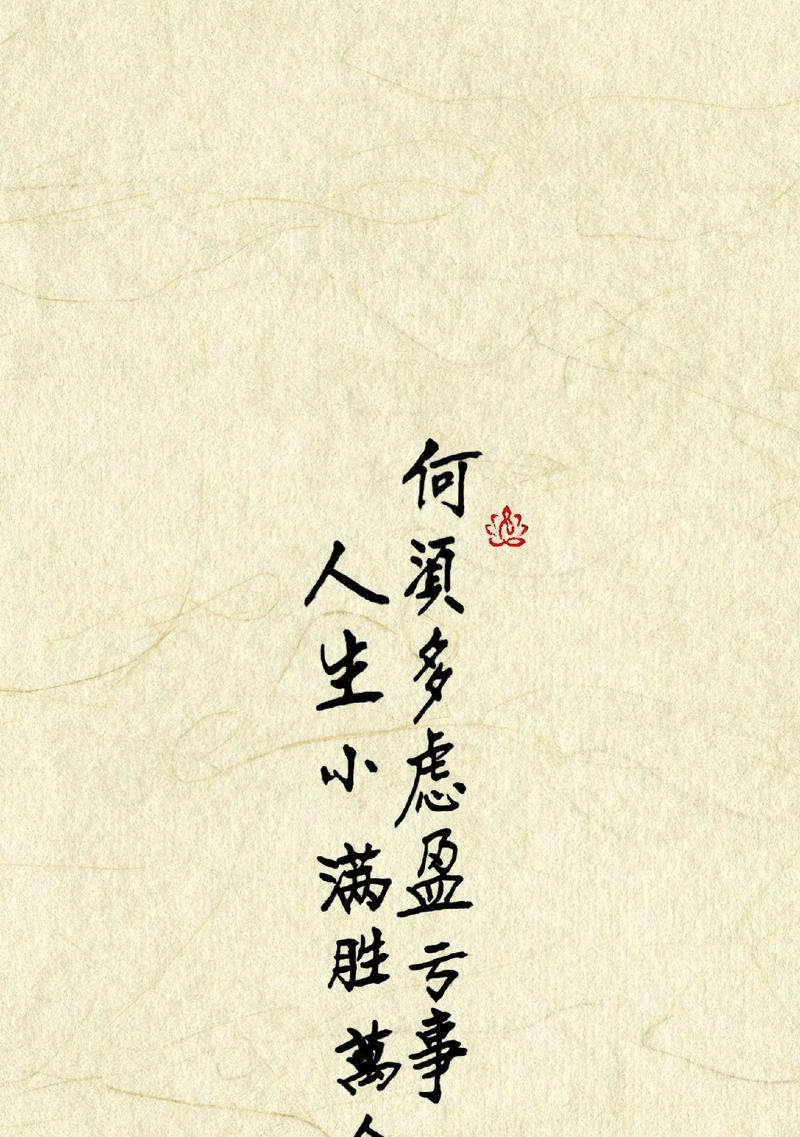 何須多虑盈亏事
人生小满胜萬